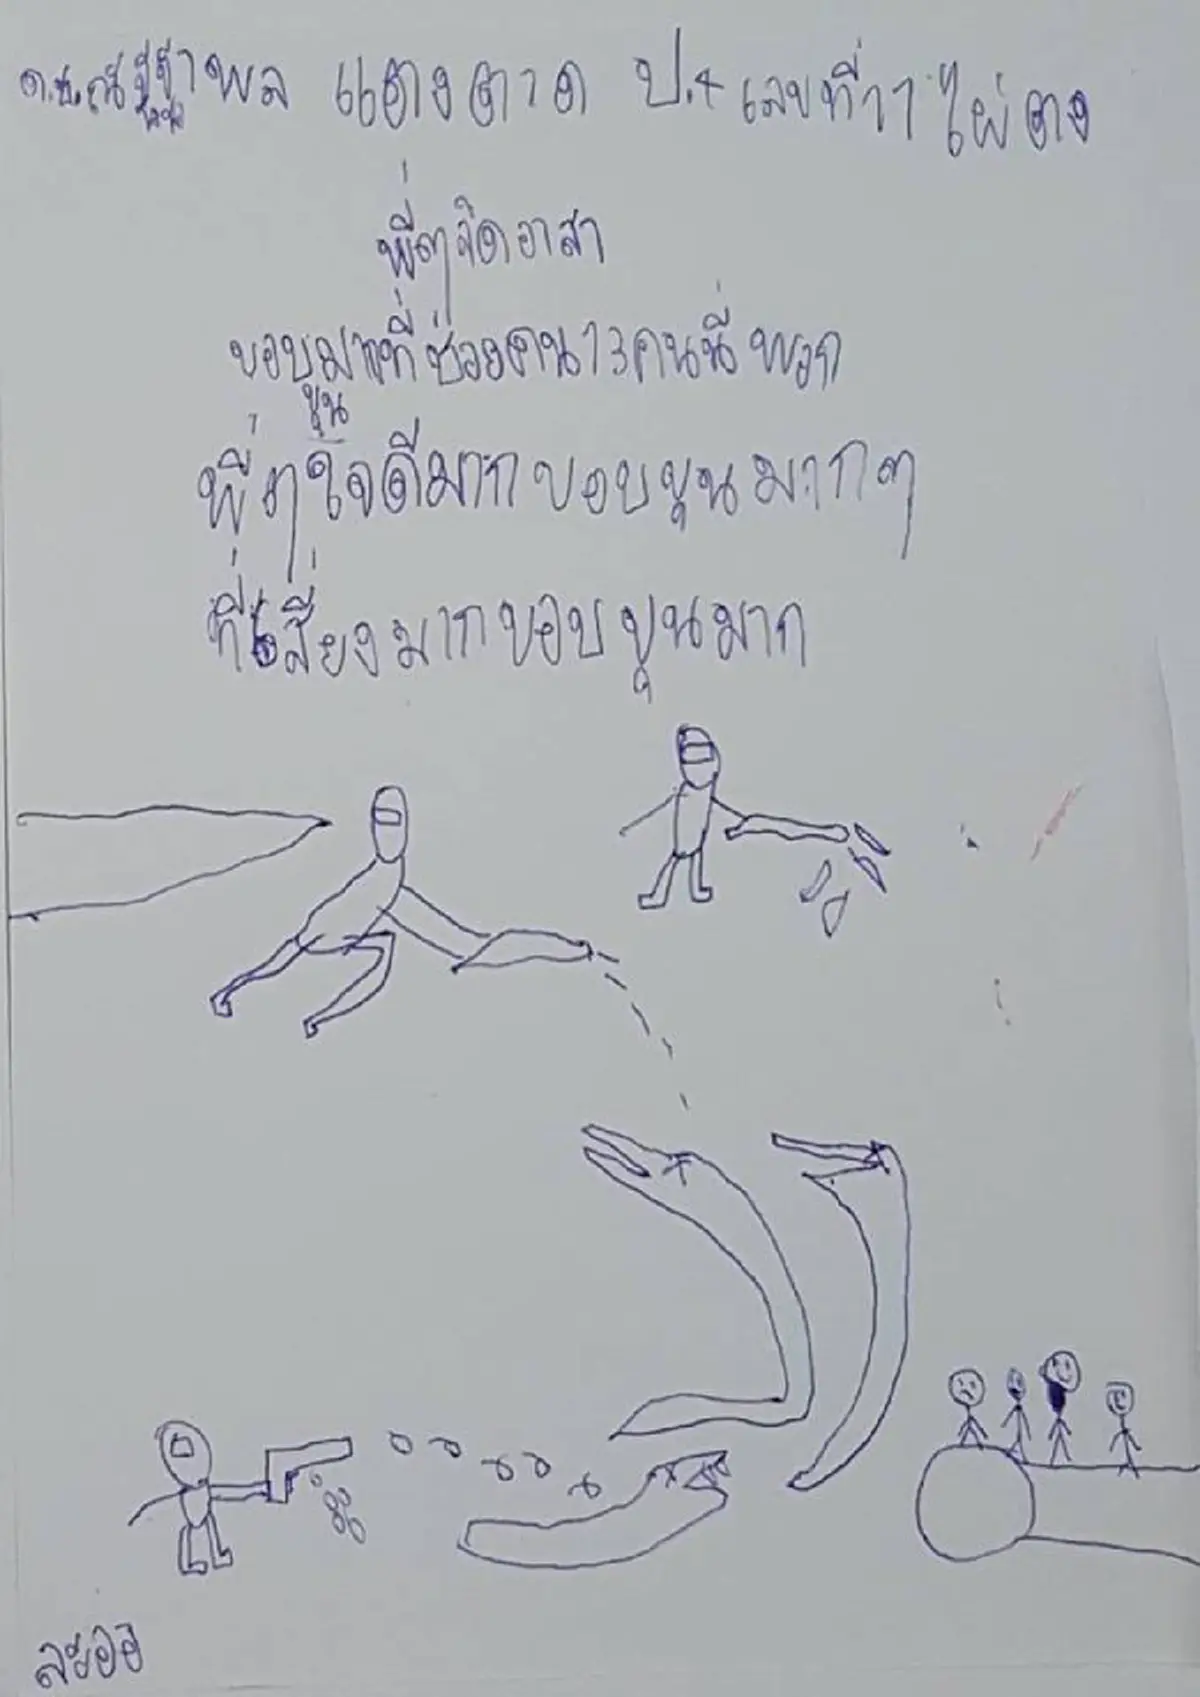 ด.ช.ณัฐิฐาพล แตงตาด ป.4 เลขที่11 ไผ่ตง
พี่ๆจิดอาสา
ขอบมากที่ช่วยคน13คนนี่ พวก
ขุน
พี่ๆใจดีมากขอบขุนมากๆ
ที่เสี่ยงมากขอบขุนมาก